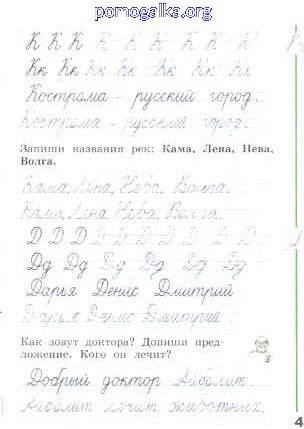 pomogalka.org
К К К К К К К К К
Кк Кк Кк Кк Кк Кк Кк
Кострома – русский город.
Кострома – русский город.
Запиши названия рек: Кама, Лена, Нева,
Волга.
Кама, Лена, Нева, Волга.
Кама, Лена, Нева, Волга.
Д Д Д Д Д Д Д Д Д
Дд Дд Дд Дд Дд Дд
Дарья Денис Дмитрий
Дарья Денис Дмитрий
Как зовут доктора? Допиши пред-
ложение. Кого он лечит?
Добрый доктор Айболит.
Айболит лечит животных.
4